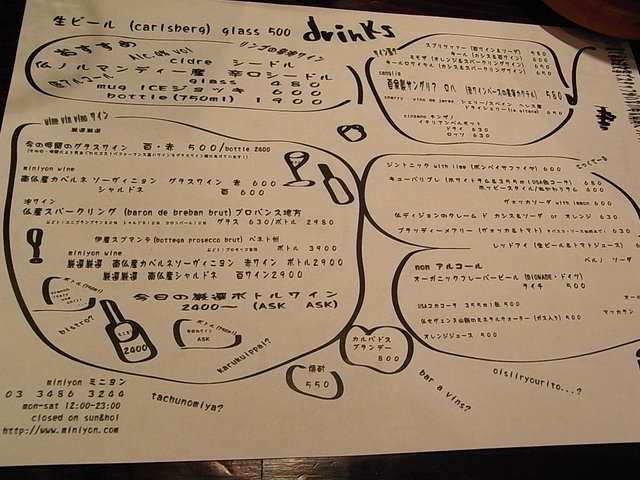 生ビール (carlsberg) glass 500
drinks
おすすめ
リンゴの発泡ワイン
cidre シードル
仏ノルマンディー産 辛口シードル
glass 480
mug ICEジョッキ 600
bottle(750ml) 1900
スプリッツァー (白ワイン&ソーダ) 580
ミモザ (オレンジ&スパークリングワイン) 650
キールロワイヤル (カシス&スパークリングワイン) 650
sangria
自家製サングリア ロハ 580
cinzano チンザノ
イタリアンベルモット
ドライ 630
ロッソ 630
wine vin vino ワイン
厳選厳選
今の時間のグラスワイン 百・赤 500/bottle 2400
miniyon wine
南仏産カベルネ ソーヴィニヨン グラスワイン 赤 600
シャルドネ 百 600
泡ワイン
仏産スパークリング (baron de breban brut) プロバンス地方
グラス 630/ボトル 2980
伊産スプマンテ (bottega prosecco brut) ベネト州
ボトル 3900
miniyon wine
厳選厳選 南仏産カベルネソーヴィニヨン 赤ワイン ボトル2900
厳選厳選 南仏産シャルドネ 百ワイン2900
今日の厳選ボトルワイン
2400〜 (ASK ASK)
2400
ASK
bistro?
karukuippai?
tachunomiya?
ジントニック with lime (ボンベイサファイヤ) 600
キューバリブレ (ホワイトラム&355mlUSA缶コーラ) 680
ホッピースタイル/ぬかわラム 400
ヴォッカソーダ with lemon 600
仏ディジョンのクレーム ド カシス&ソーダ or オレンジ 630
ブラッディーメアリー (ヴォッカ&トマト)
レッドアイ (生ビール&トマトジュース)
non アルコール
オーガニックフレーバービール (BIONADE・ドイツ)
ライチ 500
USAコカコーラ 355ml缶 500
仏セザンヌ山麓のミネラルウォーター (ガス入り) 500
オレンジジュース 500
カルバドス
ブランデー
800
焼酎
550
bar a vins?
oisiiryourito...?
miniyon ミニヨン
03 3486 3244
mon-sat 12:00-23:00
closed on sun&hol
http://www.miniyon.com